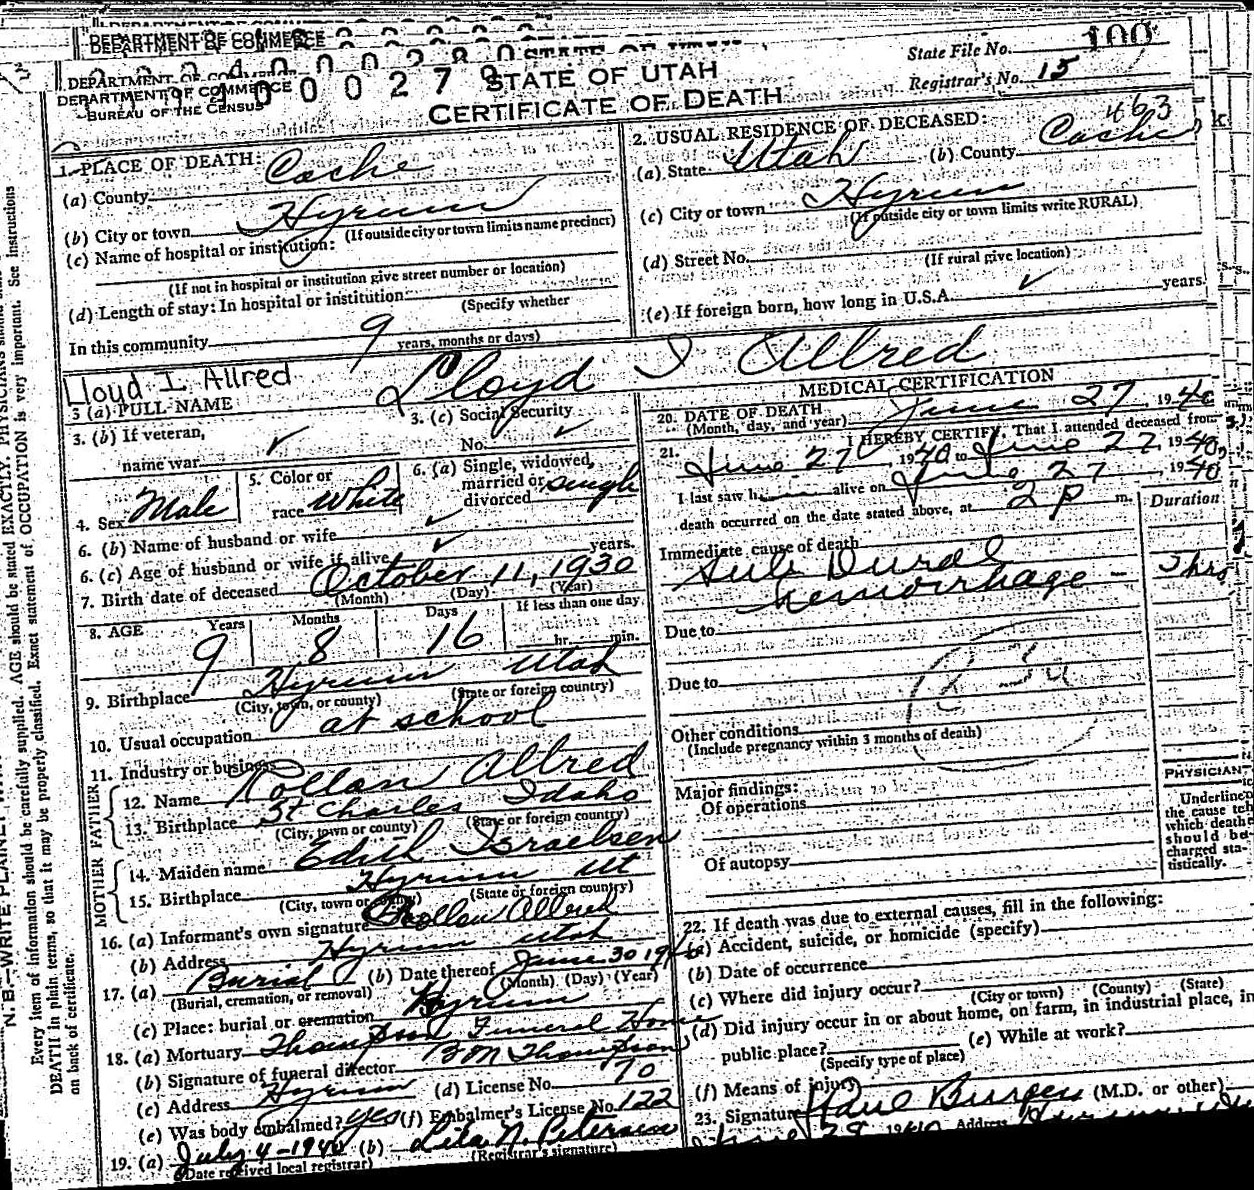 DEPARTMENT OF COMMERCE
BUREAU OF THE CENSUS
STATE OF UTAH
CERTIFICATE OF DEATH
State File No. 100
Registrar's No. 15
463
1. PLACE OF DEATH:
(a) County Cache
(b) City or town Hyrum
(If outside city or town limits name precinct)
(c) Name of hospital or institution:
(If not in hospital or institution give street number or location)
(d) Length of stay: In hospital or institution
(Specify whether
In this community 9
years, months or days)
2. USUAL RESIDENCE OF DECEASED:
(a) State Utah (b) County Cache
(c) City or town Hyrum
(If outside city or town limits write RURAL)
(d) Street No.
(If rural give location)
(e) If foreign born, how long in U.S.A. ✓ years.
Lloyd I Allred
3 (a) FULL NAME Lloyd I Allred
3. (b) If veteran,
name war ✓
3. (c) Social Security
No. ✓
4. Sex Male
5. Color or
race White
6. (a) Single, widowed,
married or
divorced single
6. (b) Name of husband or wife ✓
6. (c) Age of husband or wife if alive ✓ years.
7. Birth date of deceased October 11, 1930
(Month) (Day) (Year)
8. AGE Years Months Days If less than one day
9 8 16 hr. min.
9. Birthplace Hyrum Utah
(City, town, or county) (State or foreign country)
10. Usual occupation at school
11. Industry or business
FATHER
12. Name Rollan Allred
13. Birthplace St Charles Idaho
(City, town or county) (State or foreign country)
MOTHER
14. Maiden name Edith Israelsen
15. Birthplace Hyrum Ut
(City, town or county) (State or foreign country)
16. (a) Informant's own signature Rollan Allred
(b) Address Hyrum Utah
17. (a) Burial (b) Date thereof June 30 1940
(Burial, cremation, or removal) (Month) (Day) (Year)
(c) Place: burial or cremation Hyrum
18. (a) Mortuary Thompson Funeral Home
(b) Signature of funeral director B M Thompson
(c) Address Hyrum (d) License No. 70
(e) Was body embalmed? yes (f) Embalmer's License No. 122
19. (a) July 4-1940 (b) Lila N. Petersen
(Date received local registrar) (Registrar's signature)
MEDICAL CERTIFICATION
20. DATE OF DEATH
(Month, day, and year) June 27, 1940
21. I HEREBY CERTIFY, That I attended deceased from
June 27, 1940 to June 27, 1940,
I last saw h alive on June 27, 1940
death occurred on the date stated above, at 2 P m.
Duration
Immediate cause of death
Sub Dural
hemorrhage - 3 hrs
Due to
Due to
Other conditions
(Include pregnancy within 3 months of death)
Major findings:
Of operations
Of autopsy
PHYSICIAN
Underline
the cause to
which death
should be
charged sta-
tistically.
22. If death was due to external causes, fill in the following:
(a) Accident, suicide, or homicide (specify)
(b) Date of occurrence
(c) Where did injury occur?
(City or town) (County) (State)
(d) Did injury occur in or about home, on farm, in industrial place, in
public place? (e) While at work?
(Specify type of place)
(f) Means of injury
23. Signature Paul Burgess (M.D. or other)
June 28 1940 Address
N. B.—WRITE PLAINLY
Every item of information should be carefully supplied. AGE should be stated EXACTLY. PHYSICIANS should state
DEATH in plain terms, so that it may be properly classified. Exact statement of OCCUPATION is very important. See instructions
on back of certificate.